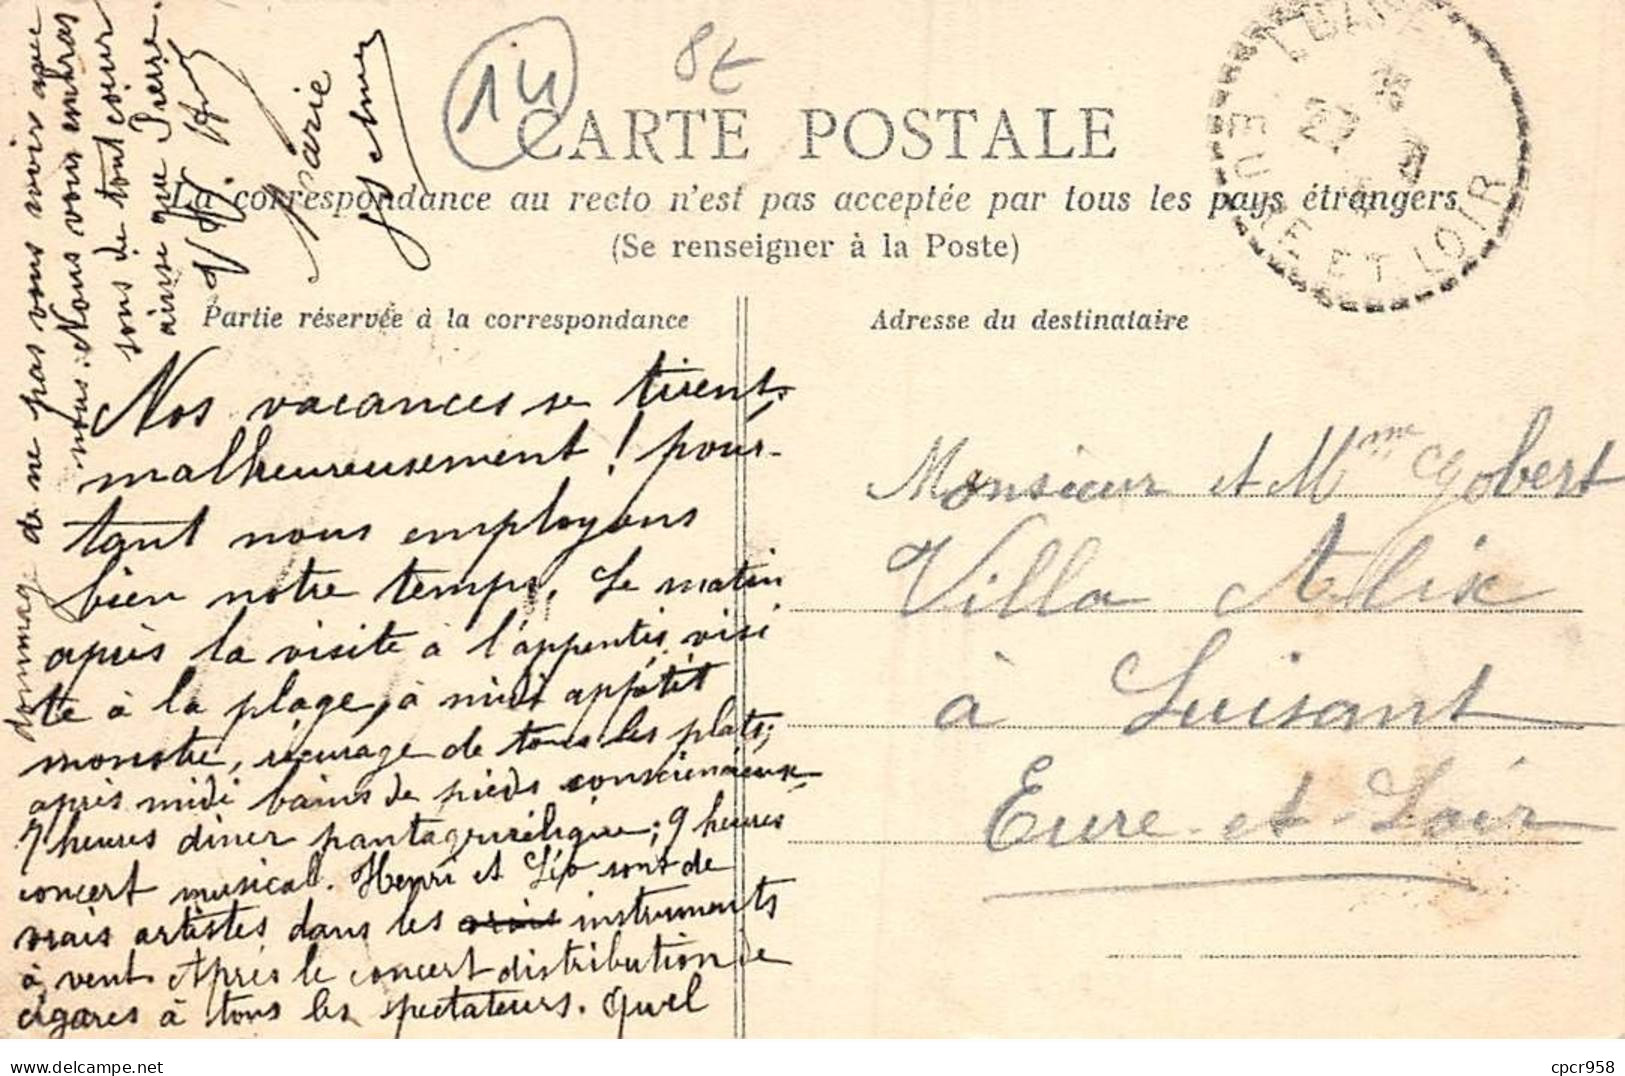 14
8t
CARTE POSTALE
La correspondance au recto n'est pas acceptée par tous les pays étrangers
(Se renseigner à la Poste)
EURE ET LOIR
27
Partie réservée à la correspondance
Nos vacances se tirent
malheureusement ! pour-
tant nous employons
bien notre temps. Le matin
après la visite à l'appentis, visi
te à la plage, à midi appétit
monstre, récurage de tous les plats;
après midi bains de pieds consciencieux
7 heures diner pantagruélique; 9 heures
concert musical. Henri et Léo sont de
vrais artistes dans les instruments
à vent. Après le concert distribution de
cigares à tous les spectateurs. Quel
dommage de ne pas vous voir avec
nous. Nous vous embras
sons de tout cœur
ainsi que Pierre.
Marie
Adresse du destinataire
Monsieur et Mme Gobert
Villa Alix
à Luisant
Eure et Loir
cpcr958